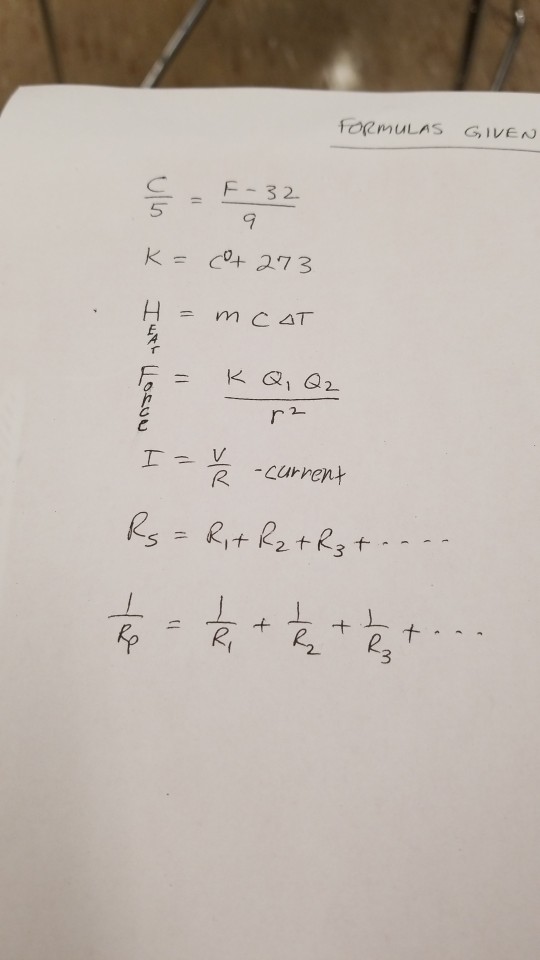 FORMULAS GIVEN
C/5 = F - 32/9
K = C⁰ + 273
HEAT = m C ΔT
Force = K Q₁ Q₂/r²
I = V/R -current
Rs = R₁ + R₂ + R₃ + .....
1/Rp = 1/R₁ + 1/R₂ + 1/R₃ + ....